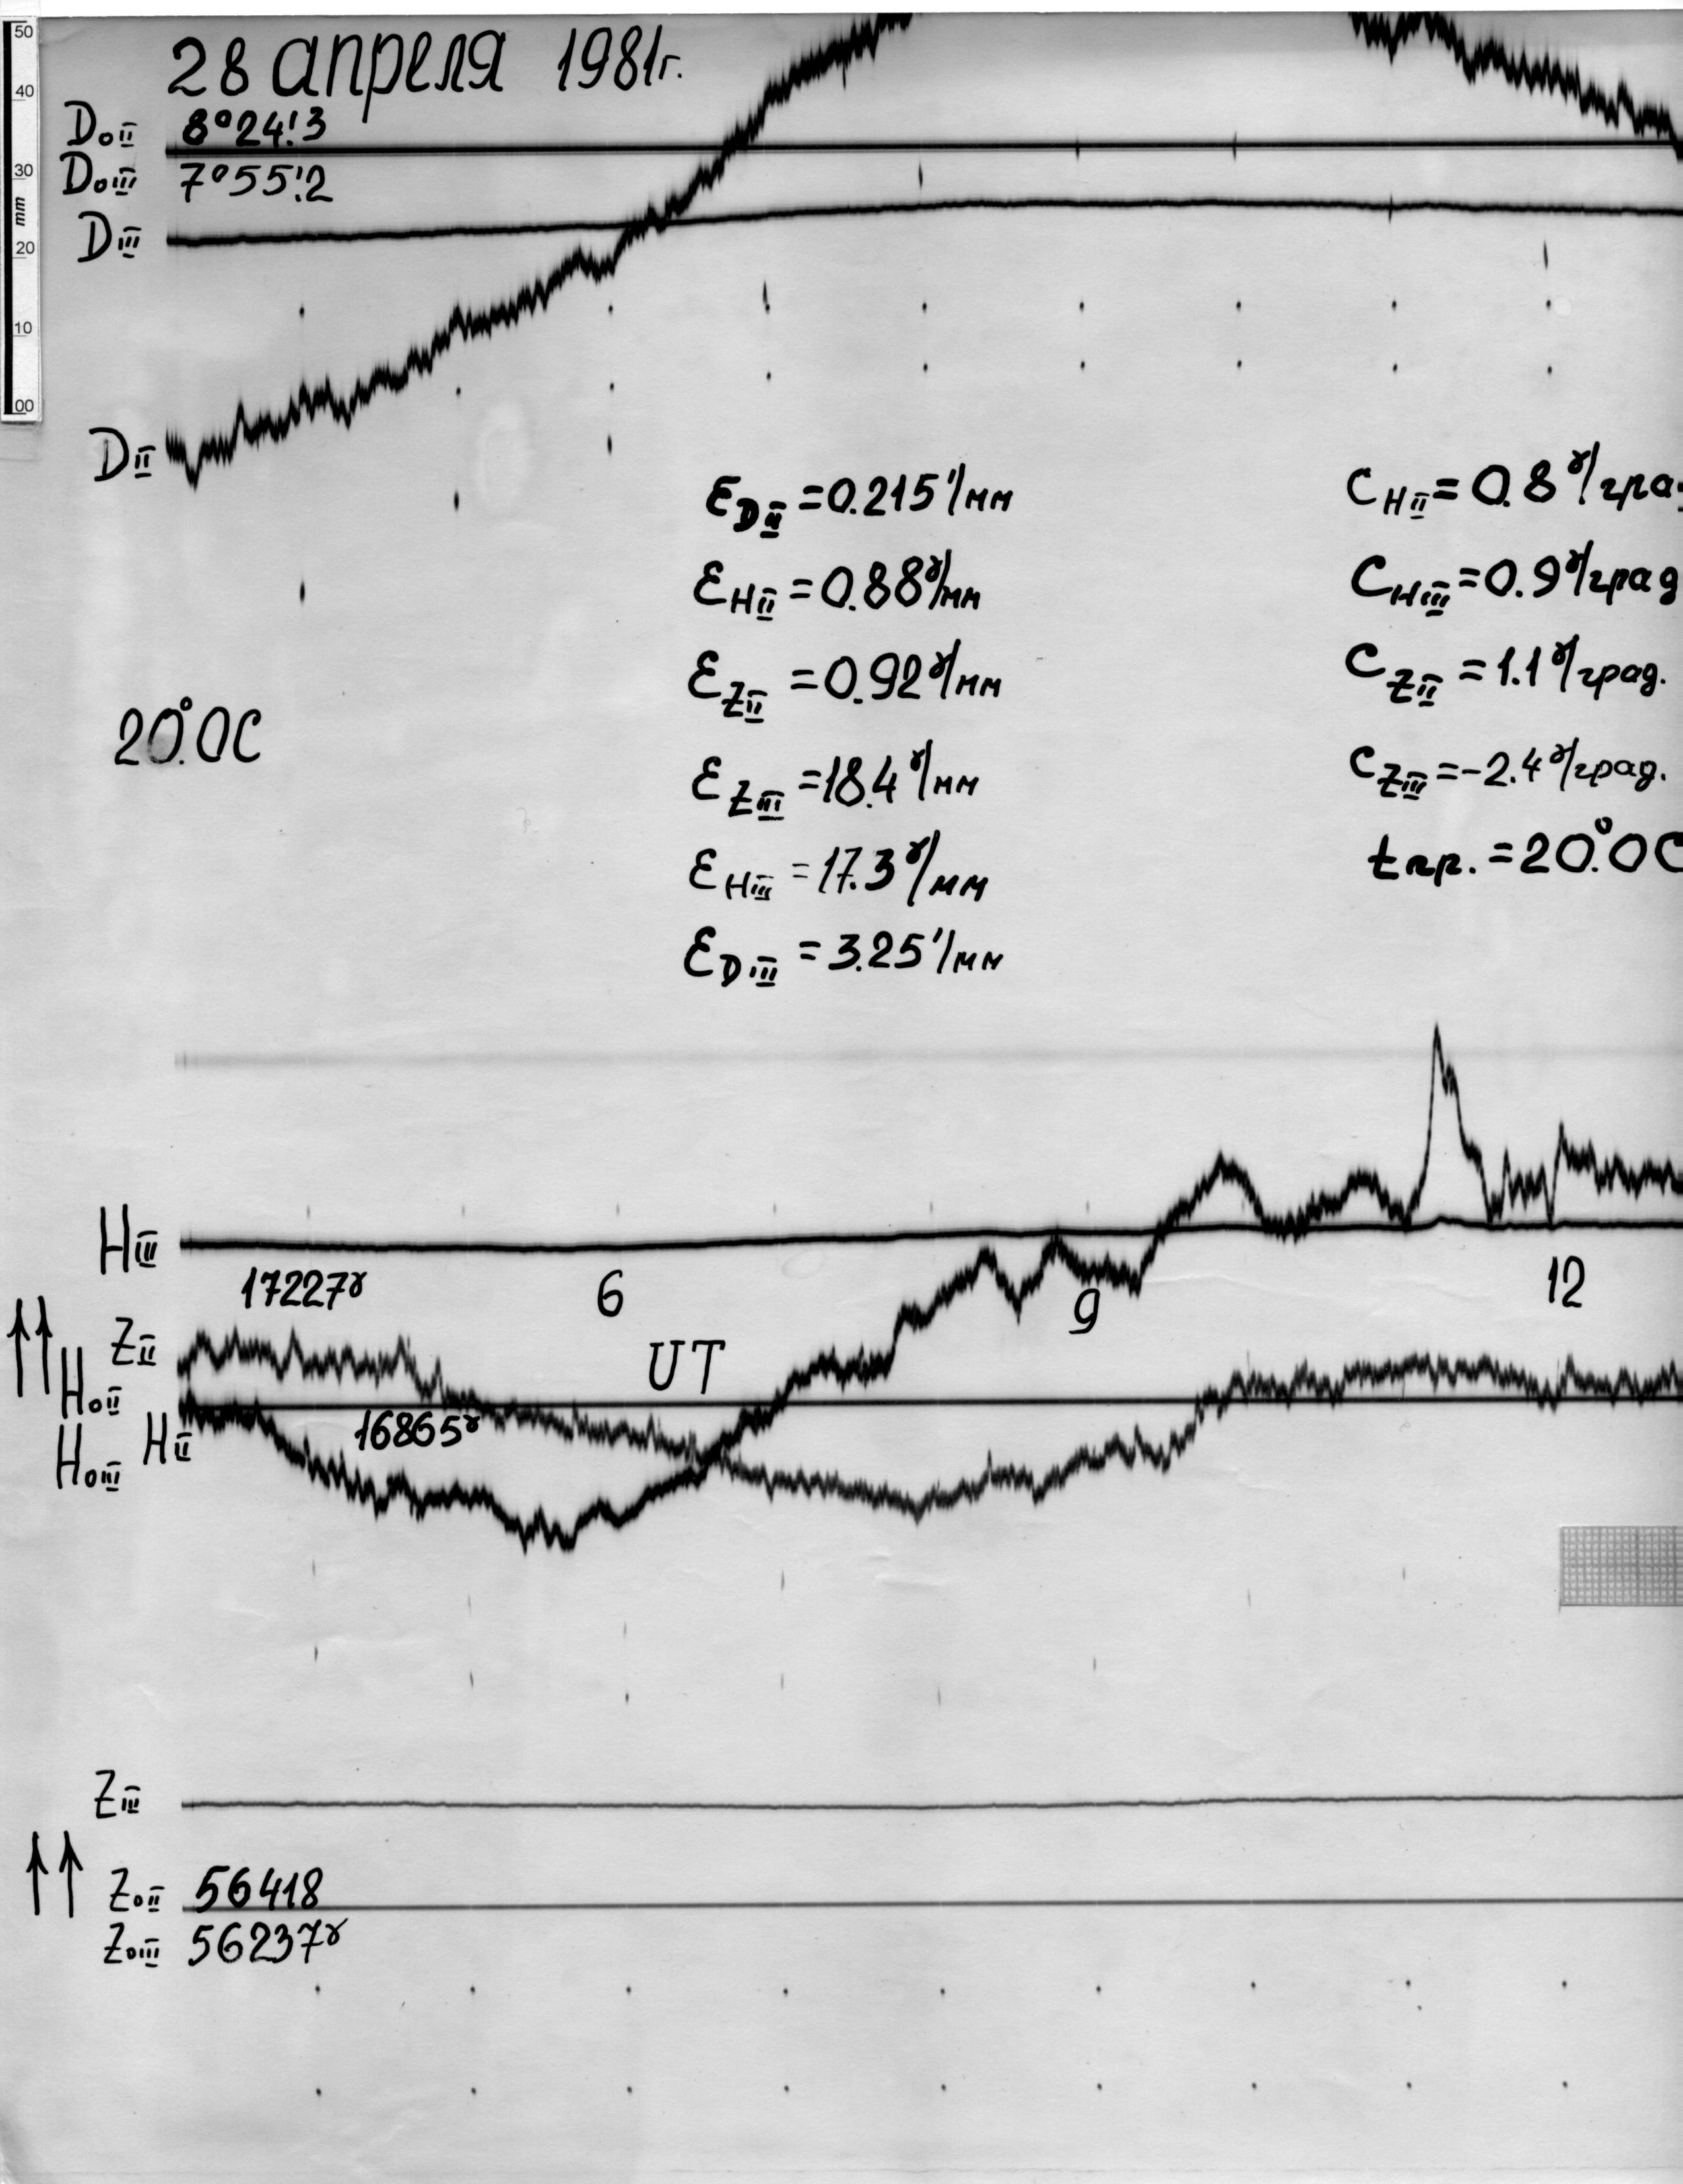 50
40
30
mm
20
10
00
28 апреля 1981г.
D₀II 8°24!3
D₀III 7°55!2
DIII
DII
20°.0C
εDII = 0.215'/мм
εHII = 0.88γ/мм
εZII = 0.92γ/мм
εZIII = 18.4γ/мм
εHIII = 17.3γ/мм
εDIII = 3.25'/мм
CHII = 0.8γ/гра
CHIII = 0.9γ/град
CZII = 1.1γ/град.
CZIII = -2.4γ/град.
tпр. = 20°.0C
HIII
17227γ
6
9
12
UT
ZII
H₀II
16865γ
HII
H₀III
ZIII
Z₀II 56418
Z₀III 56237γ